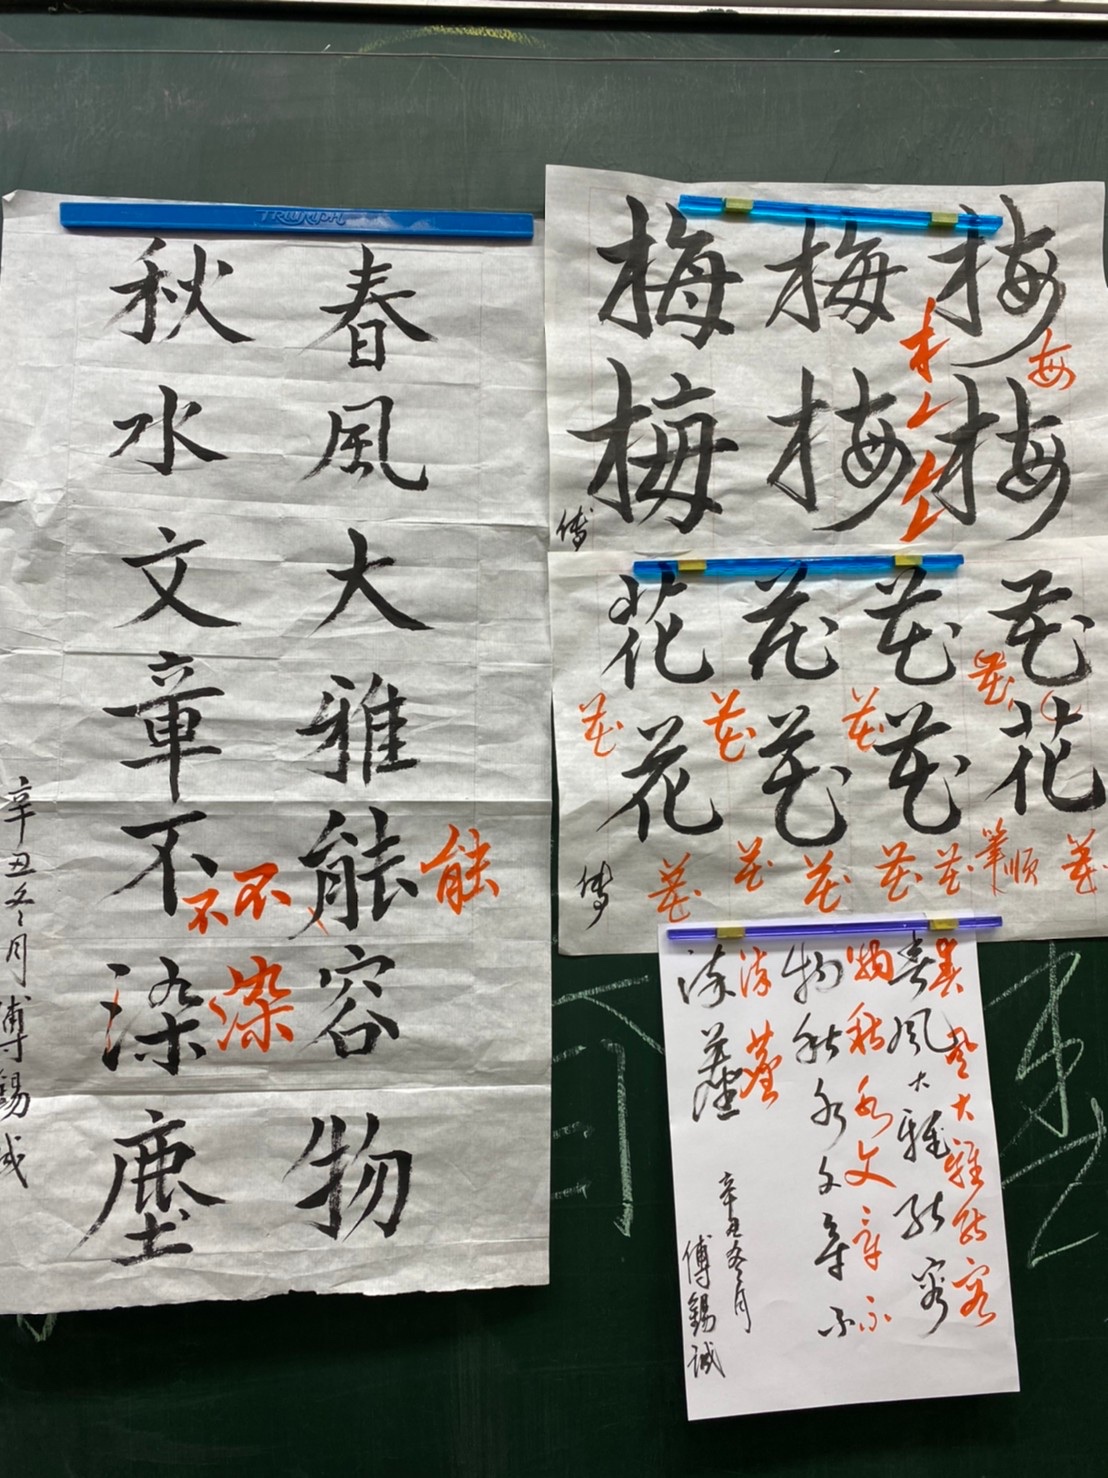 TRIUMPH
春風大雅能容物
能
秋水文章不染塵
不不
染
辛丑冬月傅錫誠
梅梅梅
梅梅梅
每
傅
花花花花
花花花花
花花花花
花花花花花
筆順
花
傅
春風大雅能容
春風大雅能容
物秋水文章不
物秋水文章不
染塵
染塵
辛丑冬月
傅錫誠